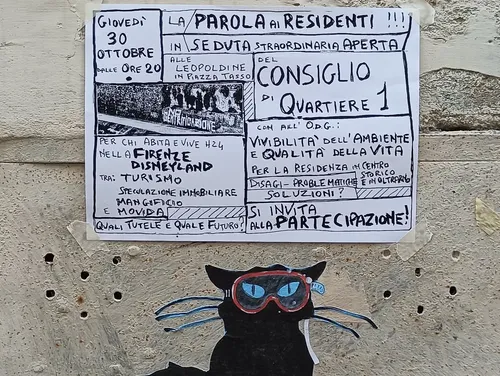 GIOVEDÌ
30
OTTOBRE
DALLE ORE 20
LA PAROLA AI RESIDENTI !!!
IN SEDUTA STRAORDINARIA APERTA
ALLE
LEOPOLDINE
IN PIAZZA TASSO
DEL
CONSIGLIO
DI QUARTIERE 1
PER CHI ABITA E VIVE H24
NELLA FIRENZE
DISNEYLAND
TRA: TURISMO
SPECULAZIONE IMMOBILIARE
MANGIFICIO
E MOVIDA
QUALI TUTELE E QUALE FUTURO?
CON ALL'O.D.G.:
VIVIBILITÀ DELL'AMBIENTE
E QUALITÀ DELLA VITA
PER LA RESIDENZA IN CENTRO
STORICO
E IN OLTRARNO
DISAGI - PROBLEMATICHE
SOLUZIONI?
SI INVITA
ALLA PARTECIPAZIONE!